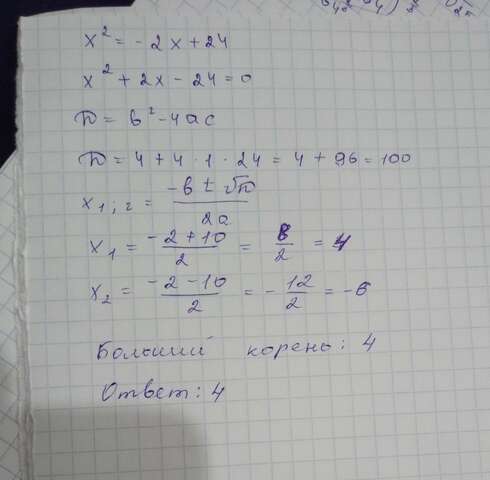 x² = -2x + 24
x² + 2x - 24 = 0
D = b² - 4ac
D = 4 + 4 · 1 · 24 = 4 + 96 = 100
x₁;₂ = (-b ± √D) / 2a
x₁ = (-2 + 10) / 2 = 8/2 = 4
x₂ = (-2 - 10) / 2 = -12/2 = -6
Больший корень: 4
Ответ: 4